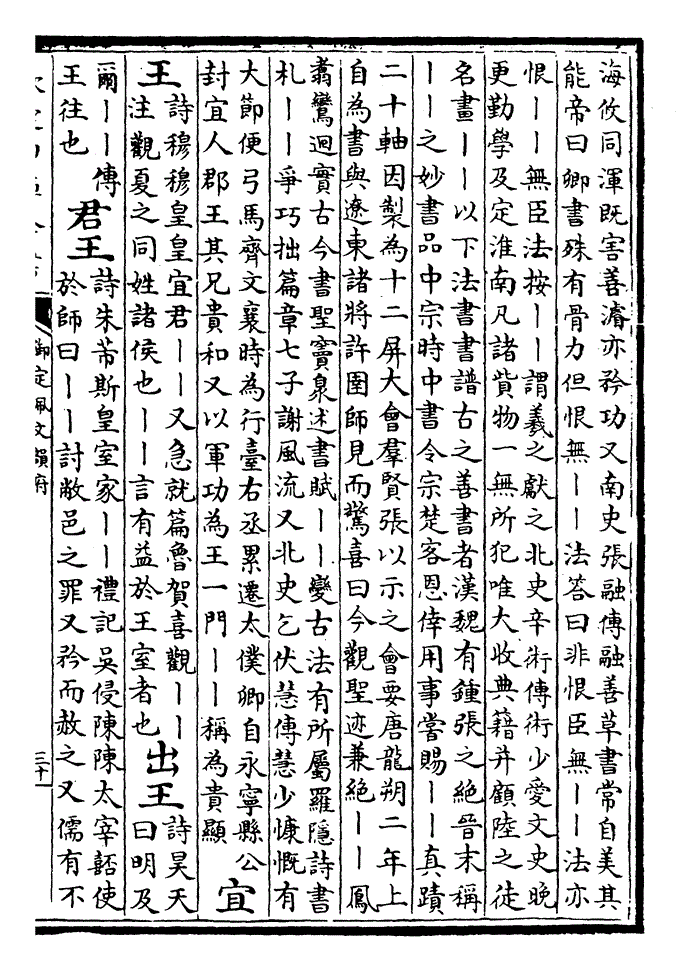 海攸同渾既害善濬亦矜功又南史張融傳融善草書常自美其
能帝曰卿書殊有骨力但恨無丨丨法答曰非恨臣無丨丨法亦
恨丨丨無臣法按丨丨謂羲之獻之北史辛術傳術少愛文史晚
更勤學及定淮南凡諸貲物一無所犯唯大收典籍并顧陸之徒
名畫丨丨以下法書書譜古之善書者漢魏有鍾張之絕晉末稱
丨丨之妙書品中宗時中書令宗楚客恩倖用事嘗賜丨丨真蹟
二十軸因製為十二屏大會羣賢張以示之會要唐龍朔二年上
自為書與遼東諸將許圉師見而驚喜曰今觀聖迹兼絕丨丨鳳
翥鸞迴實古今書聖竇泉述書賦丨丨變古法有所屬羅隱詩書
札丨丨爭巧拙篇章七子謝風流又北史乞伏慧傳慧少慷慨有
大節便弓馬齊文襄時為行臺右丞累遷太僕卿自永寧縣公
封宜人郡王其兄貴和又以軍功為王一門丨丨稱為貴顯
宜
王
詩穆穆皇皇宜君丨丨又急就篇魯賀喜觀丨丨
注觀夏之同姓諸侯也丨丨言有益於王室者也
出王
詩昊天
曰明及
爾丨丨傳
王往也
君王
詩朱芾斯皇室家丨丨禮記吳侵陳陳太宰嚭使
於師曰丨丨討敝邑之罪又矜而赦之又儒有不
御定佩文韻府
三十